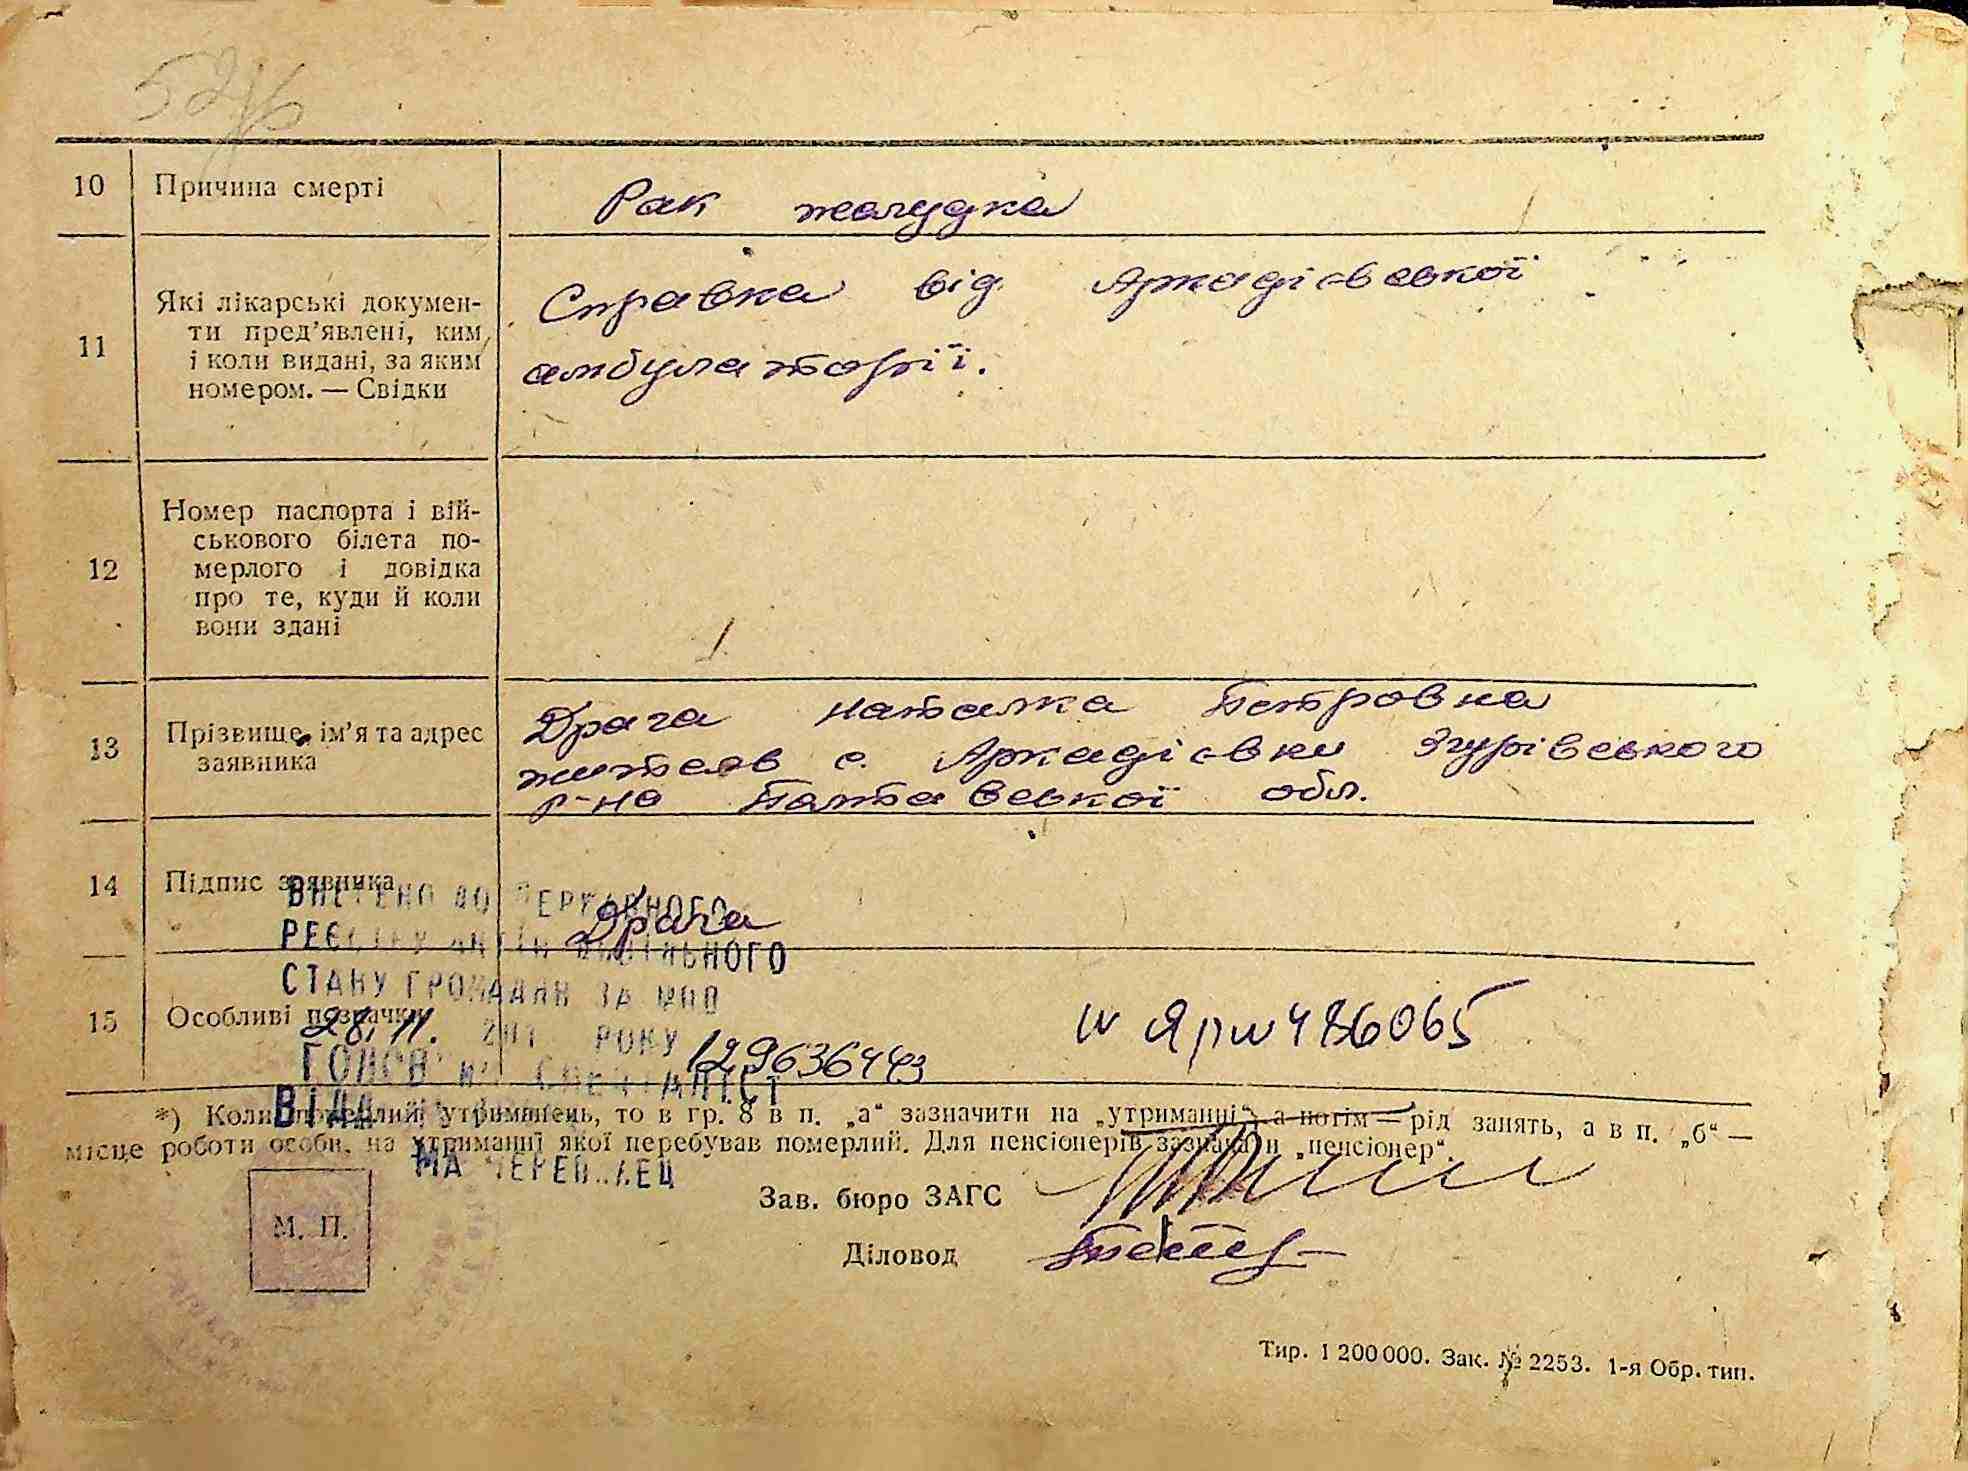 10 Причина смерті
Рак желудка
11 Які лікарські докумен-
ти пред’явлені, ким
і коли видані, за яким
номером. — Свідки
Справка від Аркадієвської
амбулаторії.
12 Номер паспорта і вій-
ськового білета по-
мерлого і довідка
про те, куди й коли
вони здані
13 Прізвище, ім’я та адрес
заявника
Драга Наталка Петровна
жителв с. Аркадієвки Згурівського
р-на Полтавської обл.
14 Підпис заявника
Драга
ВНЕСЕНО ДО ДЕРЖАВНОГО
РЕЄСТРУ АКТІВ ЦИВІЛЬНОГО
СТАНУ ГРОМАДЯН ЗА
15 Особливі позначки
28.11. РОКУ
12963644
ГОЛОВНИЙ СПЕЦІАЛІСТ
№ 486065
*) Коли померлий утриманець, то в гр. 8 в п. „а“ зазначити на „утриманні“, а потім — рід занять, а в п. „б“ —
місце роботи особи, на утриманні якої перебував померлий. Для пенсіонерів зазначати „пенсіонер“.
МА ЧЕРЕПАЕЦ
Зав. бюро ЗАГС
М. П.
Діловод
Тир. 1 200 000. Зак. № 2253. 1-я Обр. тип.